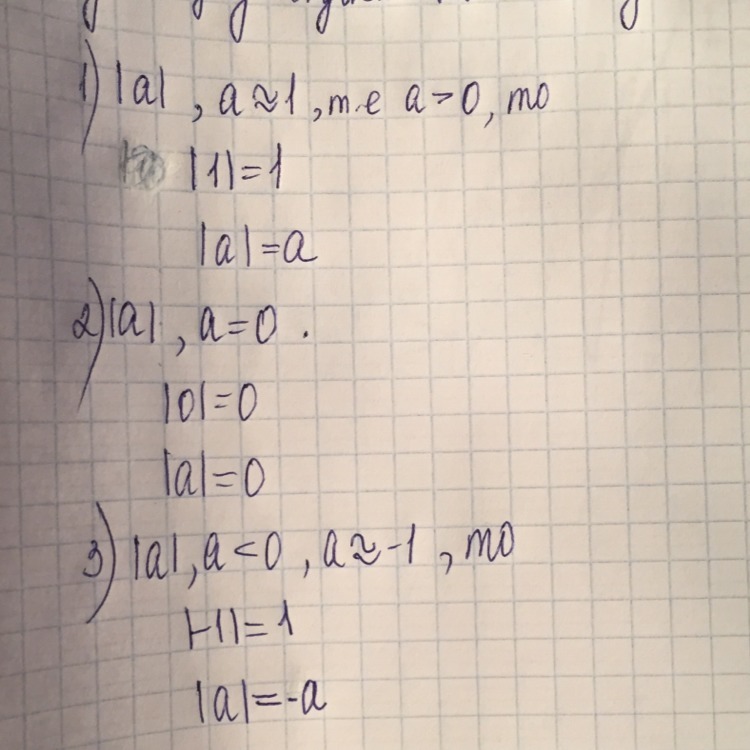 1) |a| , a≈1 , т.е a>0, то
|1|=1
|a|=a
2) |a| , a=0 .
|0|=0
|a|=0
3) |a|, a<0 , a≈-1 , то
|-1|=1
|a|=-a